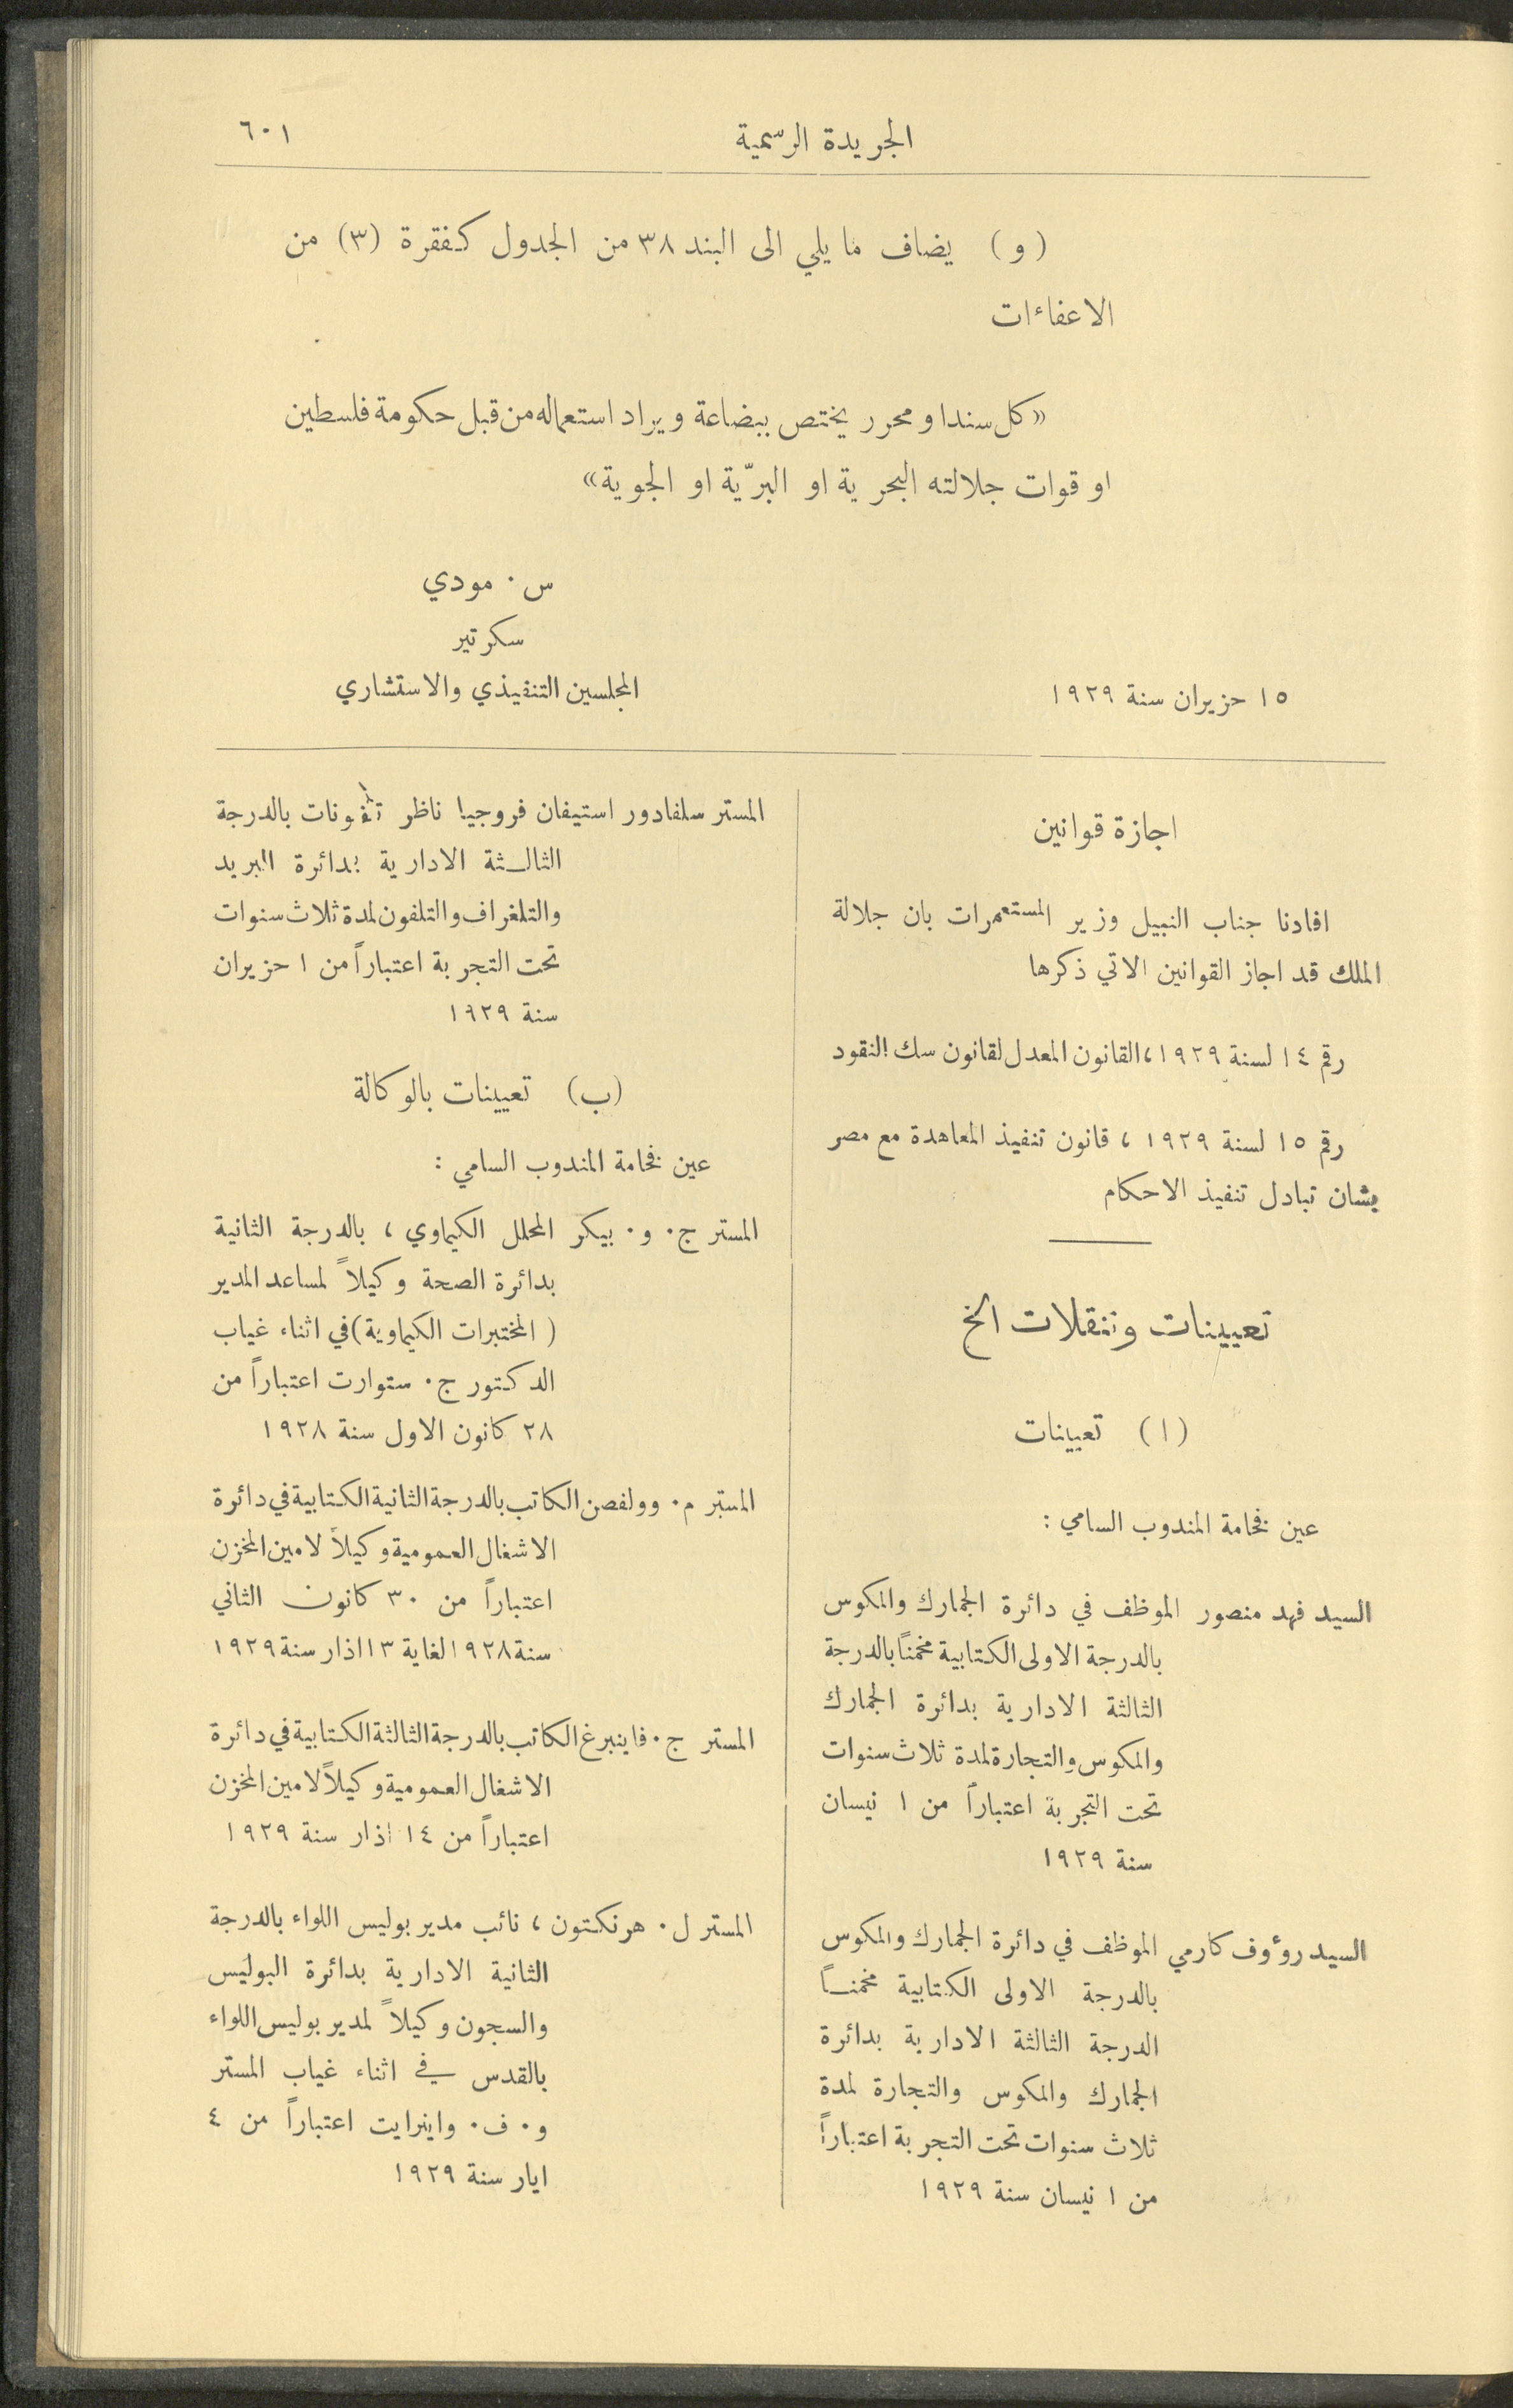 الجريدة الرسمية
٦٠١
(و) يضاف ما يلي الى البند ٣٨ من الجدول كفقرة (٣) من
الاعفاءات
«كل سند او محرر يختص ببضاعة ويراد استعماله من قبل حكومة فلسطين
او قوات جلالته البحرية او البرّية او الجوية»
س. مودي
سكرتير
المجلسين التنفيذي والاستشاري
١٥ حزيران سنة ١٩٢٩
اجازة قوانين
افادنا جناب النبيل وزير المستعمرات بان جلالة
الملك قد اجاز القوانين الاتي ذكرها
رقم ١٤ لسنة ١٩٢٩، القانون المعدل لقانون سك النقود
رقم ١٥ لسنة ١٩٢٩، قانون تنفيذ المعاهدة مع مصر
بشان تبادل تنفيذ الاحكام
تعيينات وتنقلات الخ
(ا) تعيينات
عين فخامة المندوب السامي:
السيد فهد منصور الموظف في دائرة الجمارك والمكوس
بالدرجة الاولى الكتابية مخمناً بالدرجة
الثالثة الادارية بدائرة الجمارك
والمكوس والتجارة لمدة ثلاث سنوات
تحت التجربة اعتباراً من ١ نيسان
سنة ١٩٢٩
السيد رؤوف كارمي الموظف في دائرة الجمارك والمكوس
بالدرجة الاولى الكتابية مخمناً
الدرجة الثالثة الادارية بدائرة
الجمارك والمكوس والتجارة لمدة
ثلاث سنوات تحت التجربة اعتباراً
من ١ نيسان سنة ١٩٢٩
المستر سلفادور استيفان فروجيا ناظر تلفونات بالدرجة
الثالثة الادارية بدائرة البريد
والتلغراف والتلفون لمدة ثلاث سنوات
تحت التجربة اعتباراً من ١ حزيران
سنة ١٩٢٩
(ب) تعيينات بالوكالة
عين فخامة المندوب السامي:
المستر ج. و. بيكر المحلل الكيماوي، بالدرجة الثانية
بدائرة الصحة وكيلاً لمساعد المدير
(المختبرات الكيماوية) في اثناء غياب
الدكتور ج. ستوارت اعتباراً من
٢٨ كانون الاول سنة ١٩٢٨
المستر م. وولفصن الكاتب بالدرجة الثانية الكتابية في دائرة
الاشغال العمومية وكيلاً لامين المخزن
اعتباراً من ٣٠ كانون الثاني
سنة ١٩٢٨ لغاية ١٣ اذار سنة ١٩٢٩
المستر ج. فاينبرغ الكاتب بالدرجة الثالثة الكتابية في دائرة
الاشغال العمومية وكيلاً لامين المخزن
اعتباراً من ١٤ اذار سنة ١٩٢٩
المستر ل. هرنكتون، نائب مدير بوليس اللواء بالدرجة
الثانية الادارية بدائرة البوليس
والسجون وكيلاً لمدير بوليس اللواء
بالقدس في اثناء غياب المستر
و. ف. واينرايت اعتباراً من ٤
ايار سنة ١٩٢٩